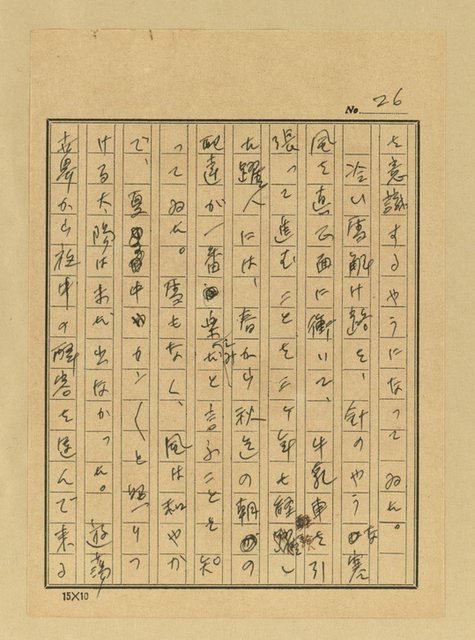 No. 26
を意識するやうになつてゐた。
冷い雪解け路を、針のやうな寒
風を真正面に衝いて、牛乳車を引
張つて進むことを二ケ年も経験し
た躍人には、春から秋迄の朝の
配達が一番楽しみだと言ふことを知
つてゐた。雪もなく、風は和やか
で、夏中カン〱と照りつ
ける太陽は未だ出なかつた。遊蕩
世界から社中の酔客を運んで来る
15×10